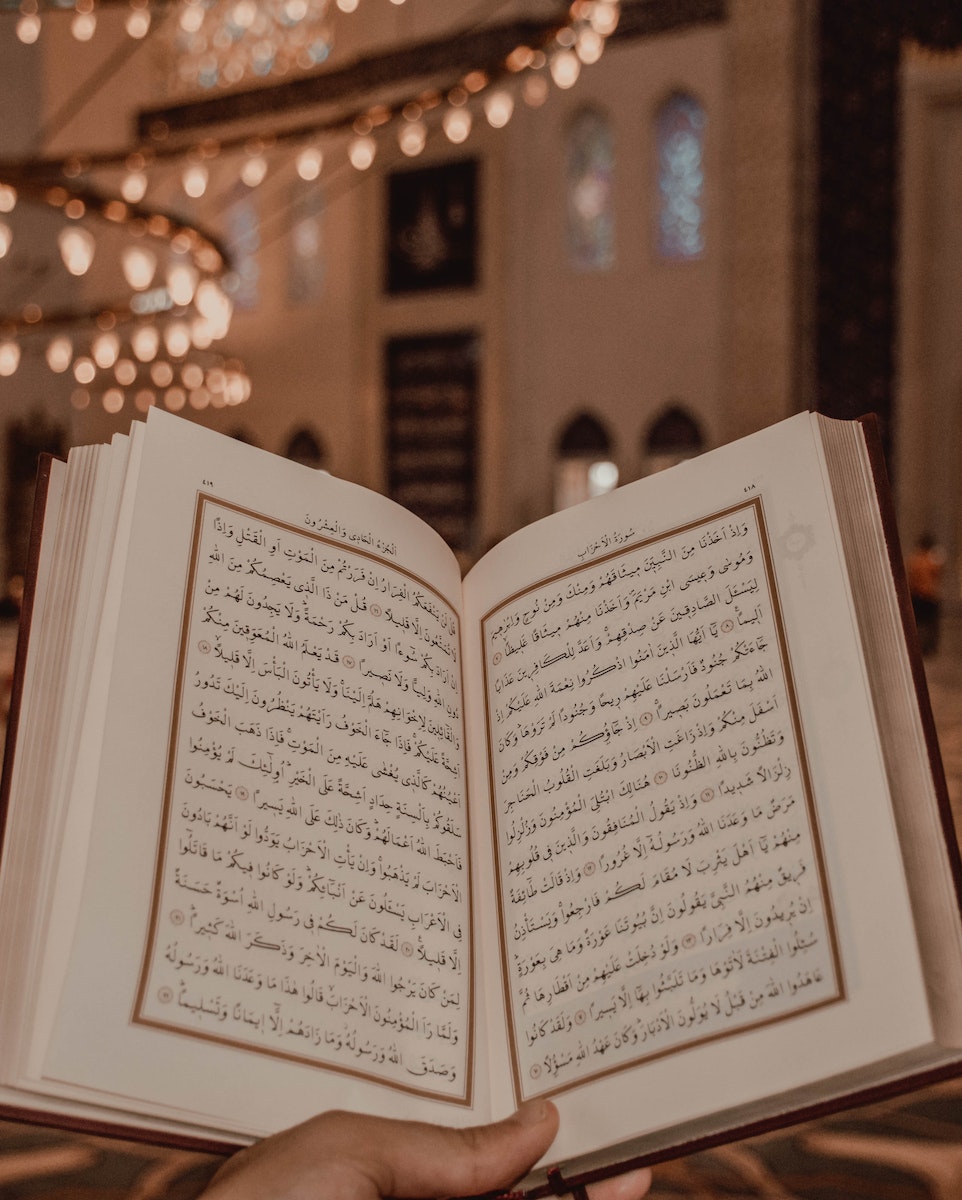 ٤١٨
سُورَةُ الْاَحْزَابِ
وَاِذْ اَخَذْنَا مِنَ النَّبِيّنَ مِيثَاقَهُمْ وَمِنْكَ وَمِنْ نُوحٍ وَاِبْرٰهِيمَ
وَمُوسٰى وَعِيسَى ابْنِ مَرْيَمَ وَاَخَذْنَا مِنْهُمْ مِيثَاقًا غَلِيظًا ﴿٧﴾
لِيَسْئَلَ الصَّادِقِينَ عَنْ صِدْقِهِمْ وَاَعَدَّ لِلْكَافِرِينَ عَذَابًا
اَلِيمًا ﴿٨﴾ يَا اَيُّهَا الَّذِينَ اٰمَنُوا اذْكُرُوا نِعْمَةَ اللّٰهِ عَلَيْكُمْ اِذْ
جَاءَتْكُمْ جُنُودٌ فَاَرْسَلْنَا عَلَيْهِمْ رِيحًا وَجُنُودًا لَمْ تَرَوْهَا وَكَانَ
اللّٰهُ بِمَا تَعْمَلُونَ بَصِيرًا ﴿٩﴾ اِذْ جَاؤُكُمْ مِنْ فَوْقِكُمْ وَمِنْ
اَسْفَلَ مِنْكُمْ وَاِذْ زَاغَتِ الْاَبْصَارُ وَبَلَغَتِ الْقُلُوبُ الْحَنَاجِرَ
وَتَظُنُّونَ بِاللّٰهِ الظُّنُونَا ﴿١٠﴾ هُنَالِكَ ابْتُلِىَ الْمُؤْمِنُونَ وَزُلْزِلُوا
زِلْزَالًا شَدِيدًا ﴿١١﴾ وَاِذْ يَقُولُ الْمُنَافِقُونَ وَالَّذِينَ فِى قُلُوبِهِمْ
مَرَضٌ مَا وَعَدَنَا اللّٰهُ وَرَسُولُهُ اِلَّا غُرُورًا ﴿١٢﴾ وَاِذْ قَالَتْ طَائِفَةٌ
مِنْهُمْ يَا اَهْلَ يَثْرِبَ لَا مُقَامَ لَكُمْ فَارْجِعُوا وَيَسْتَأْذِنُ
فَرِيقٌ مِنْهُمُ النَّبِىَّ يَقُولُونَ اِنَّ بُيُوتَنَا عَوْرَةٌ وَمَا هِىَ بِعَوْرَةٍ
اِنْ يُرِيدُونَ اِلَّا فِرَارًا ﴿١٣﴾ وَلَوْ دُخِلَتْ عَلَيْهِمْ مِنْ اَقْطَارِهَا ثُمَّ
سُئِلُوا الْفِتْنَةَ لَاٰتَوْهَا وَمَا تَلَبَّثُوا بِهَا اِلَّا يَسِيرًا ﴿١٤﴾ وَلَقَدْ كَانُوا
عَاهَدُوا اللّٰهَ مِنْ قَبْلُ لَا يُوَلُّونَ الْاَدْبَارَ وَكَانَ عَهْدُ اللّٰهِ مَسْؤُلًا ﴿١٥﴾
٤١٩
اَلْجُزْءُ الْحَادِى وَالْعِشْرُونَ
قُلْ لَنْ يَنْفَعَكُمُ الْفِرَارُ اِنْ فَرَرْتُمْ مِنَ الْمَوْتِ اَوِ الْقَتْلِ وَاِذًا
لَا تُمَتَّعُونَ اِلَّا قَلِيلًا ﴿١٦﴾ قُلْ مَنْ ذَا الَّذِى يَعْصِمُكُمْ مِنَ اللّٰهِ
اِنْ اَرَادَ بِكُمْ سُوءًا اَوْ اَرَادَ بِكُمْ رَحْمَةً وَلَا يَجِدُونَ لَهُمْ مِنْ
دُونِ اللّٰهِ وَلِيًّا وَلَا نَصِيرًا ﴿١٧﴾ قَدْ يَعْلَمُ اللّٰهُ الْمُعَوِّقِينَ مِنْكُمْ
وَالْقَائِلِينَ لِاِخْوَانِهِمْ هَلُمَّ اِلَيْنَا وَلَا يَأْتُونَ الْبَأْسَ اِلَّا قَلِيلًا ﴿١٨﴾
اَشِحَّةً عَلَيْكُمْ فَاِذَا جَاءَ الْخَوْفُ رَاَيْتَهُمْ يَنْظُرُونَ اِلَيْكَ تَدُورُ
اَعْيُنُهُمْ كَالَّذِى يُغْشٰى عَلَيْهِ مِنَ الْمَوْتِ فَاِذَا ذَهَبَ الْخَوْفُ
سَلَقُوكُمْ بِاَلْسِنَةٍ حِدَادٍ اَشِحَّةً عَلَى الْخَيْرِ اُولٰئِكَ لَمْ يُؤْمِنُوا
فَاَحْبَطَ اللّٰهُ اَعْمَالَهُمْ وَكَانَ ذٰلِكَ عَلَى اللّٰهِ يَسِيرًا ﴿١٩﴾ يَحْسَبُونَ
الْاَحْزَابَ لَمْ يَذْهَبُوا وَاِنْ يَأْتِ الْاَحْزَابُ يَوَدُّوا لَوْ اَنَّهُمْ بَادُونَ
فِى الْاَعْرَابِ يَسْئَلُونَ عَنْ اَنْبَائِكُمْ وَلَوْ كَانُوا فِيكُمْ مَا قَاتَلُوا
اِلَّا قَلِيلًا ﴿٢٠﴾ لَقَدْ كَانَ لَكُمْ فِى رَسُولِ اللّٰهِ اُسْوَةٌ حَسَنَةٌ
لِمَنْ كَانَ يَرْجُوا اللّٰهَ وَالْيَوْمَ الْاٰخِرَ وَذَكَرَ اللّٰهَ كَثِيرًا ﴿٢١﴾
وَلَمَّا رَاَ الْمُؤْمِنُونَ الْاَحْزَابَ قَالُوا هٰذَا مَا وَعَدَنَا اللّٰهُ وَرَسُولُهُ
وَصَدَقَ اللّٰهُ وَرَسُولُهُ وَمَا زَادَهُمْ اِلَّا اِيمَانًا وَتَسْلِيمًا ﴿٢٢﴾